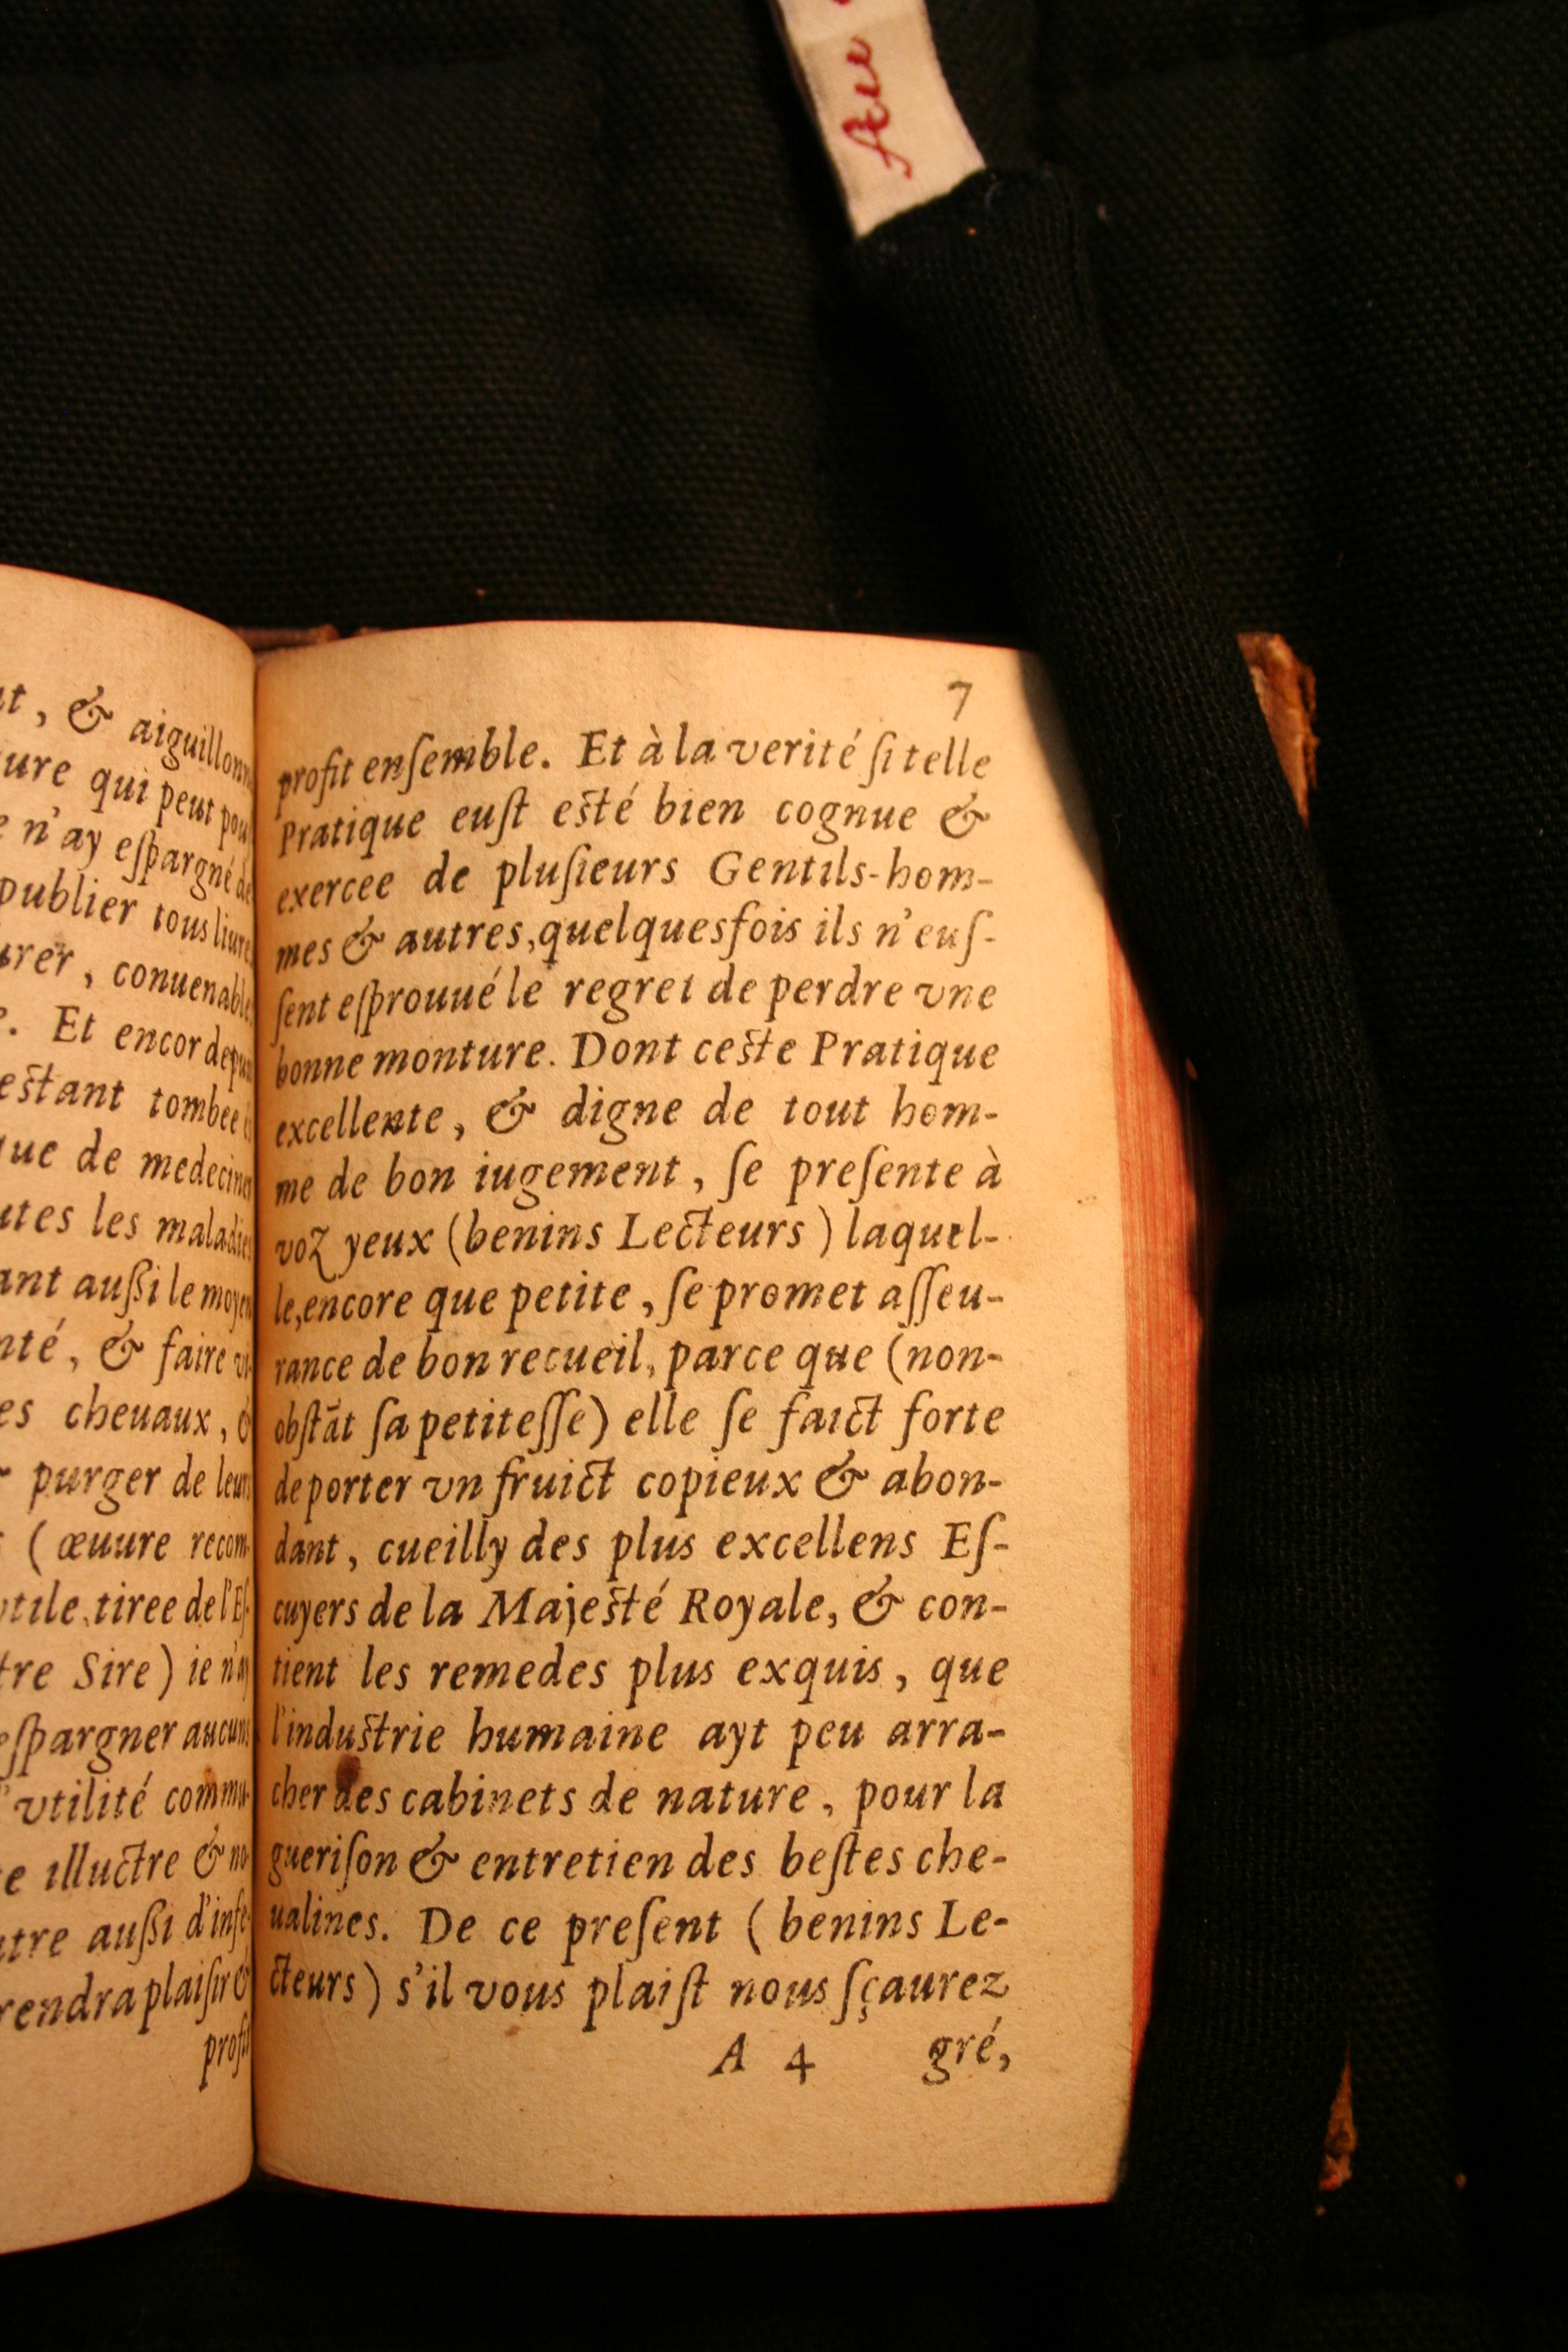 Au
t, & aiguillonn
ure qui peut pou
e n'ay eſpargné de
publier tous liure
urer, conuenable
e. Et encor depu
eſtant tombee
que de medecine
utes les maladies
ant auſſi le moyen
nté, & faire vi-
es cheuaux, &
purger de leurs
(œuure recom-
vtile, tiree de l'Eſ-
tre Sire) ie n'ay
eſpargner aucuns
l'vtilité commu-
e illuctre & no-
utre auſſi d'infe-
rendra plaiſir &
profit
7
profit enſemble. Et à la verité ſi telle
Pratique euſt eſté bien cognue &
exercee de pluſieurs Gentils-hom-
mes & autres, quelquesfois ils n'euſ-
ſent eſprouué le regret de perdre vne
bonne monture. Dont ceſte Pratique
excellente, & digne de tout hom-
me de bon iugement, ſe preſente à
voz yeux (benins Lecteurs) laquel-
le, encore que petite, ſe promet aſſeu-
rance de bon recueil, parce que (non-
obſtāt ſa petiteſſe) elle ſe faict forte
de porter vn fruict copieux & abon-
dant, cueilly des plus excellens Eſ-
cuyers de la Majeſté Royale, & con-
tient les remedes plus exquis, que
l'induſtrie humaine ayt peu arra-
cher des cabinets de nature, pour la
gueriſon & entretien des beſtes che-
ualines. De ce preſent (benins Le-
cteurs) s'il vous plaiſt nous ſçaurez
A 4 gré,